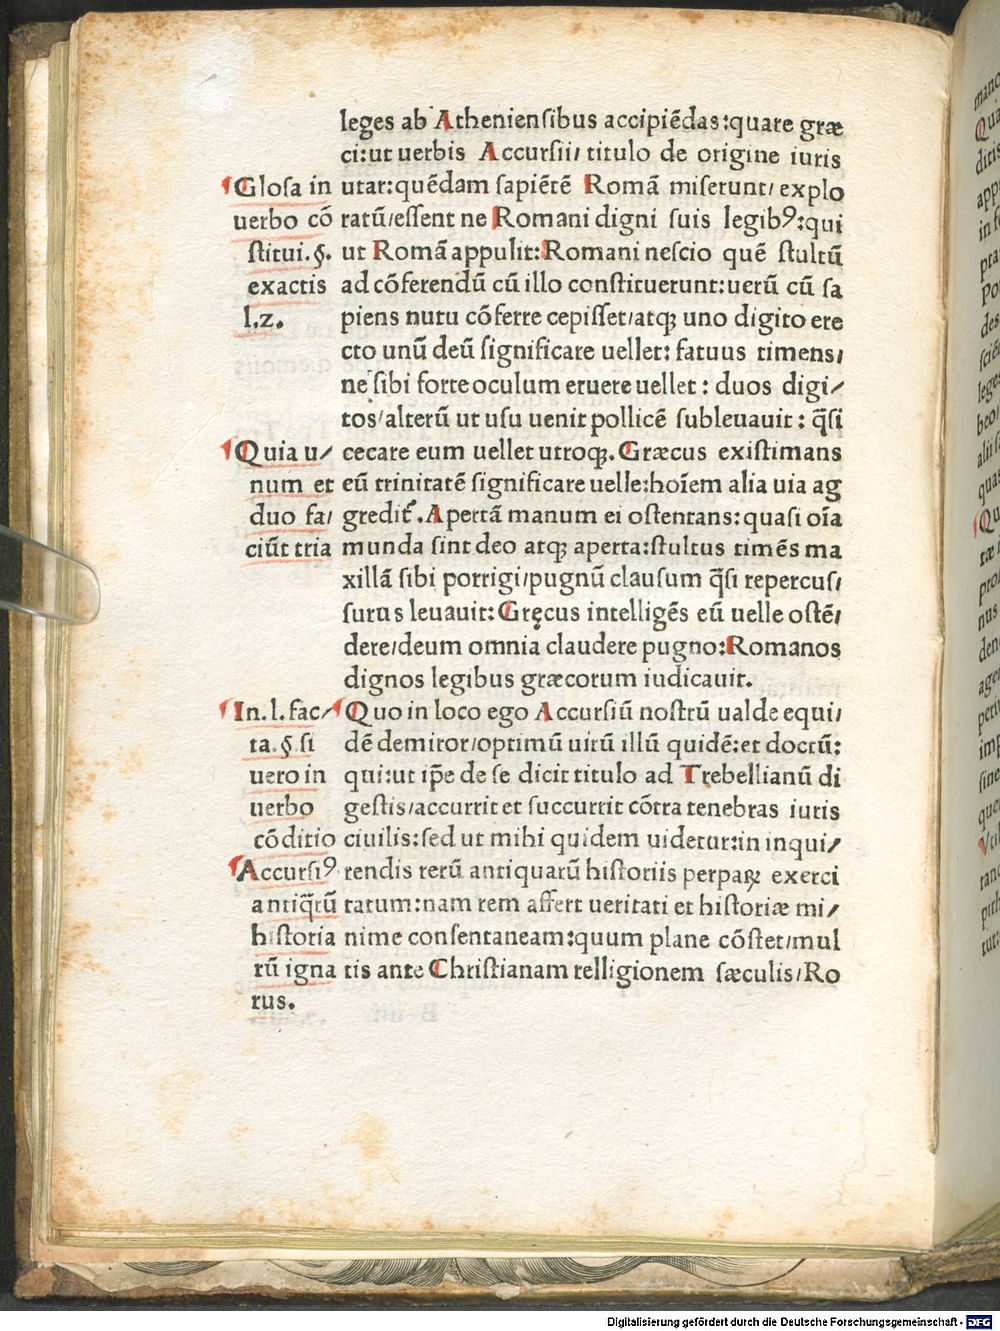 leges ab Atheniensibus accipiēdas:quare græ
ci:ut uerbis Accursii/titulo de origine iuris
utar:quēdam sapiētē Romā miserunt/explo
ratū/essent ne Romani digni suis legibꝰ:qui
ut Romā appulit:Romani nescio quē stultū
ad cōferendū cū illo constituerunt:uerū cū sa
piens nutu cōferre cepisset/atqꝫ uno digito ere
cto unū deū significare uellet: fatuus timens/
ne sibi forte oculum eruere uellet: duos digi/
tos/alterū ut usu uenit pollicē subleuauit: q̄si
cecare eum uellet utroqꝫ. Græcus existimans
eū trinitatē significare uelle:hoīem alia uia ag
gredit᷑. Apertā manum ei ostentans:quasi oīa
munda sint deo atqꝫ aperta:stultus timēs ma
xillā sibi porrigi/pugnū clausum q̄si repercus/
surus leuauit: Gręcus intelligēs eū uelle ostē/
dere/deum omnia claudere pugno:Romanos
dignos legibus græcorum iudicauit.
Quo in loco ego Accursiū nostrū ualde equi/
dē demiror/optimū uirū illū quidē:et doctū:
qui:ut ip̄e de se dicit titulo ad Trebellianū di
gestis/accurrit et succurrit cōtra tenebras iuris
ciuilis:sed ut mihi quidem uidetur:in inqui/
rendis rerū antiquarū historiis perparꝝ exerci
tatum:nam rem affert ueritati et historiæ mi/
nime consentaneam:quum plane cōstet/mul
tis ante Christianam relligionem sæculis/Ro
Glosa in
uerbo cō
stitui.§.
exactis
l.z.
Quia u/
num et
duo fa/
ciūt tria
In.l.fac/
ta.§.si
uero in
uerbo
cōditio
Accursiꝰ
antiq̄rū
historia
rū igna
rus.
Digitalisierung gefördert durch die Deutsche Forschungsgemeinschaft - DFG